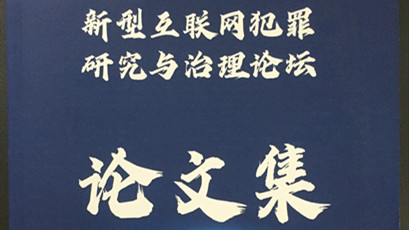 新型互联网犯罪
研究与治理论坛
论文集